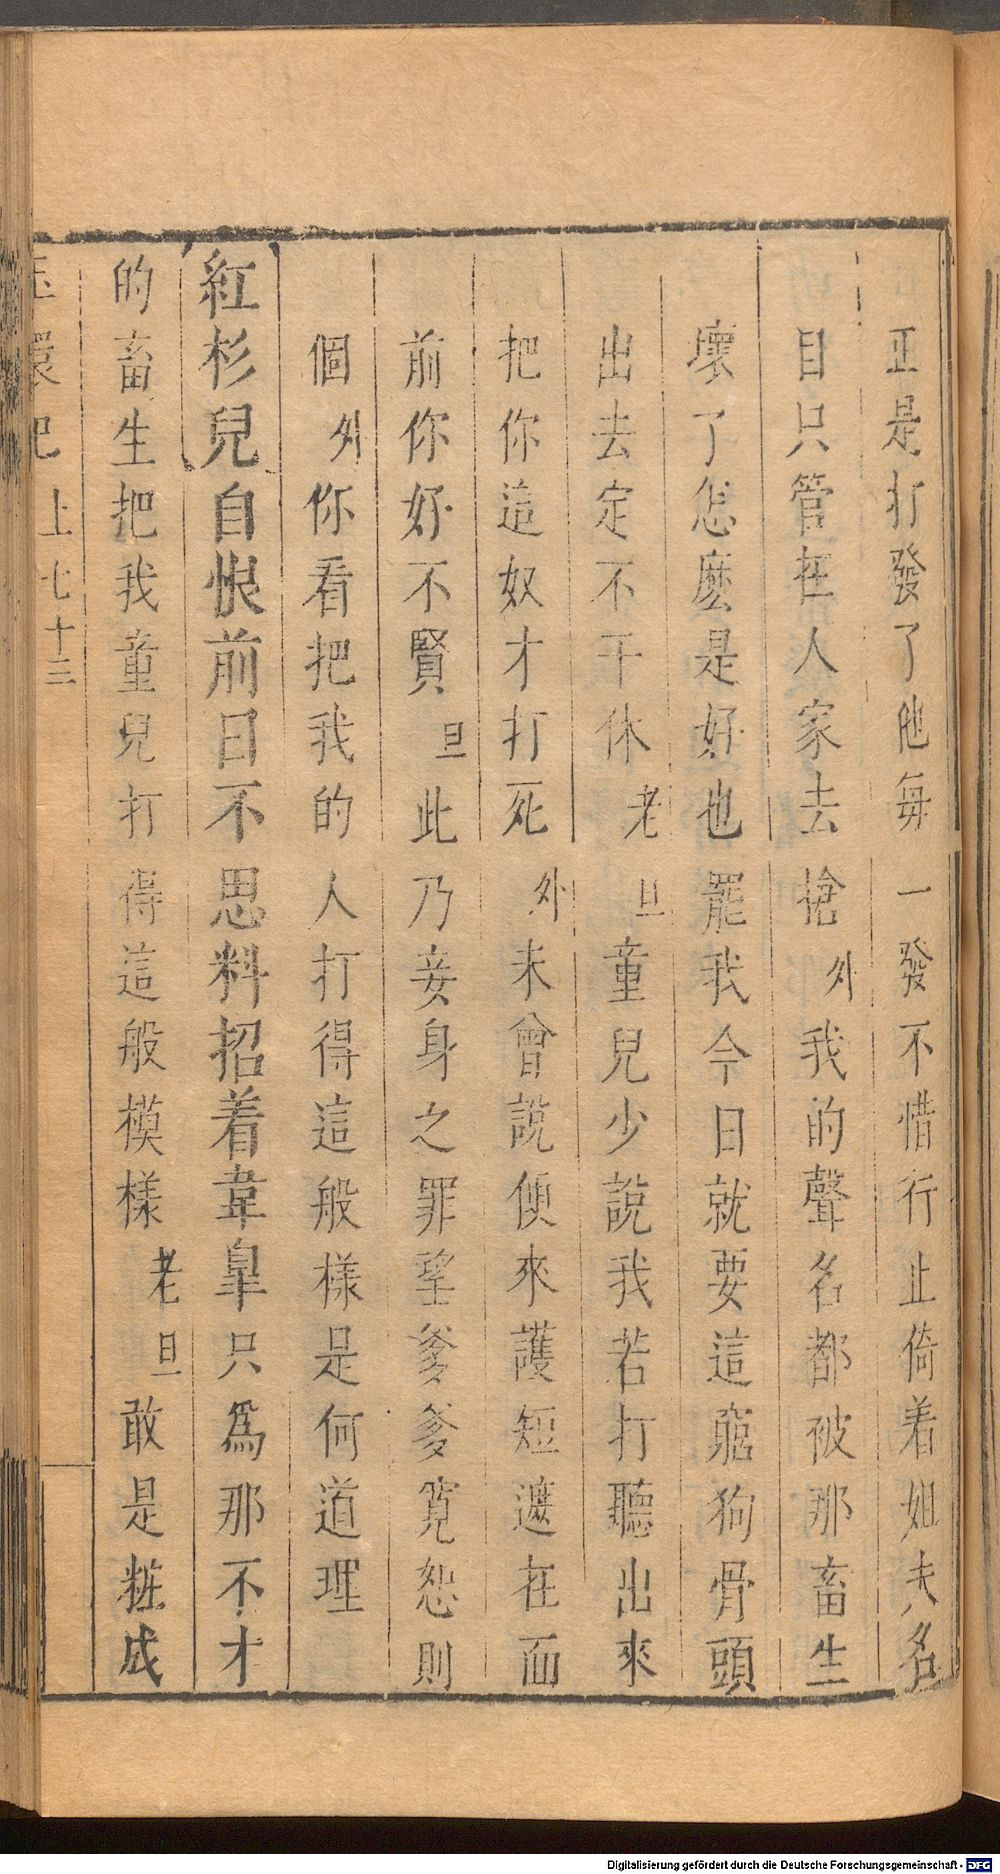 正是打發了他每一發不惜行止倚着姐夫名
目只管在人家去搶外我的聲名都被那畜生
壞了怎麼是好也罷我今日就要這窮狗骨頭
出去定不干休老旦童兒少說我若打聽出來
把你這奴才打死外未曾說便來護短遮在面
前你好不賢旦此乃妾身之罪望爹爹寬恕則
個外你看把我的人打得這般樣是何道理
紅杉兒自恨前日不思料招着韋臯只為那不才
的畜生把我童兒打得這般模樣老旦敢是粧成
玉環記 上七十三
Digitalisierung gefördert durch die Deutsche Forschungsgemeinschaft - DFG